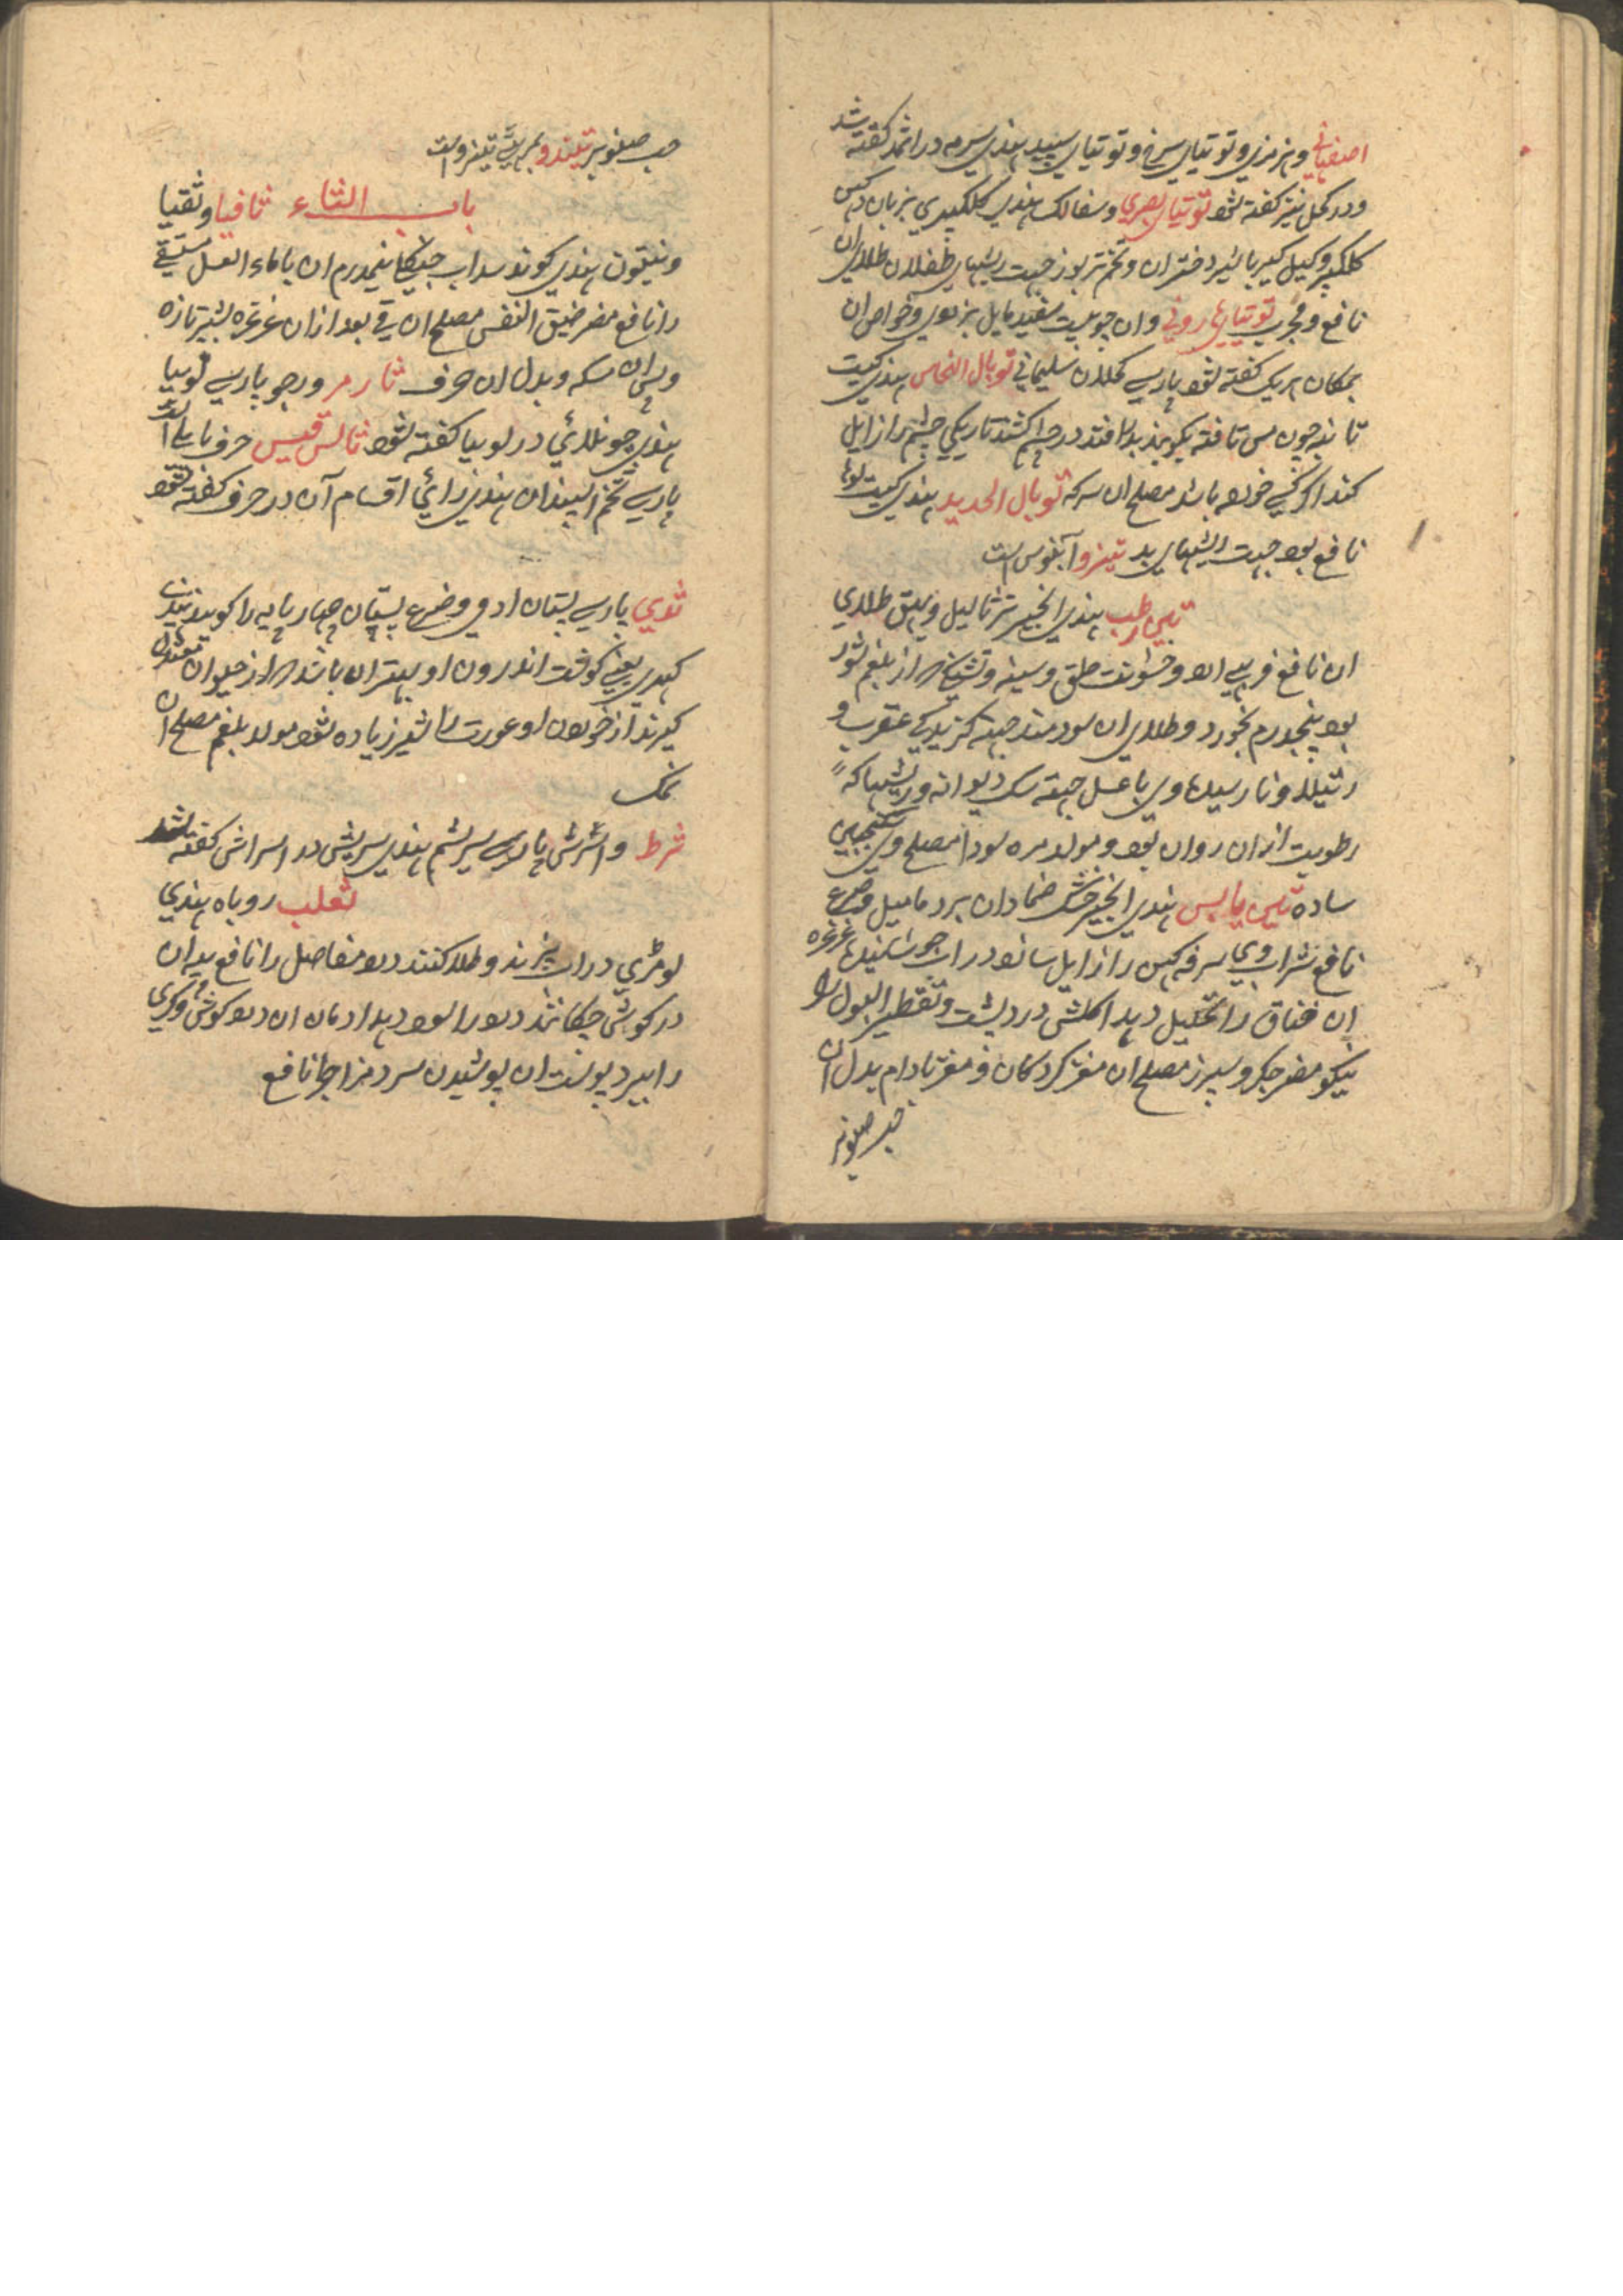 اصفهاني و هرمزي و توتیاي سرخ و توتیاي سپید هندي سرمه در اثمد کفته شد
و در کحل نیز کفته شود توتیاي بصري و سفالک هندي کلکیري بزبان دکهن
کلکیر و کیل کیر باشیر دختران و تخم تربوز جهت ریشهاي طفلان طلاي ان
نافع و مجرب توتیاي هاروني و ان چوبیست سفید مایل بزردي و خواص ان
بمکان هر یک کفته شود پارسي کحلان سلیماني توبال النحاس هندي کیت
تانبه چون مس تافته بکوبند بدر افتد در چشم کشند تاریکي چشم را زایل
کند اکر کهنه خورده باشد مصلح ان سرکه توبال الحدید هندي کیت لوها
نافع بود جهت ریشهاي بد تینزو آبنوس است
تین رطب هندي انجیر تر ثالیل و بهق طلاي
ان نافع فربهي ارد و خشونت حلق و سینه و تشنج که از بلغم شور
بود پنجدرم بخورد و طلاي ان سودمند جهته کزیدکي عقرب و
رتیلا و نارسیدهاوي با عسل جهته سک دیوانه و ریشها که
رطوبت ازان روان بود و مولد مره سودا مصلح وي سکنجبین
ساده تین یابس هندي انجیر خشک ضمادان بر دمامیل و صرع
نافع شراب وي سرفه کهن را زایل سازد در اب جوشانیده غرغره
ان خناق را تحلیل دهد اکلش درد پشت و تقطیر البول را
نیکو مضر جکر و سپرز مصلح ان مغز کردکان و مغز بادام بدل ان
حب صنوبر
حب صنوبر تیندو تینزو است
باب الثاء ثافیا و ثقیا
و نیتون هندي کوند سداب جنکلي نیمدرم ان باماء العسل مستسقي
را نافع مضر ضیق النفس مصلح ان قي بعد ازان غرغره بشیر تازه
و پس ان سکه و بدل ان حرف ثارمر و رجو پارسي لوبیا
هندي چونلائي در لوبیا کفته شود ثالسقیس حرف بابلي است
پارسي تخم اسپندان هندي رائي اقسام آن در حرف کفته شود
ثدي پارسي پستان ادمي و ضرع پستان چهارپایه را کویند هندي
کهیري یعني کوشت اندرون او بهتر ان باشد که از حیوان معتدل
کیرند از خوردن او عورت را شیر زیاده شود مولد بلغم مصلح ان
نمک
ثرط و اشرش پارسي سریشم هندي سریش در اسراش کفته شد
ثعلب روباه هندي
لومڑي در اب پزند و طلا کنند درد مفاصل را نافع پیه ان
در کوش چکانند درد را سود دهد ادمان ان درد کوش و کري
را ببرد پوست ان پوشیدن سرد مزاج را نافع